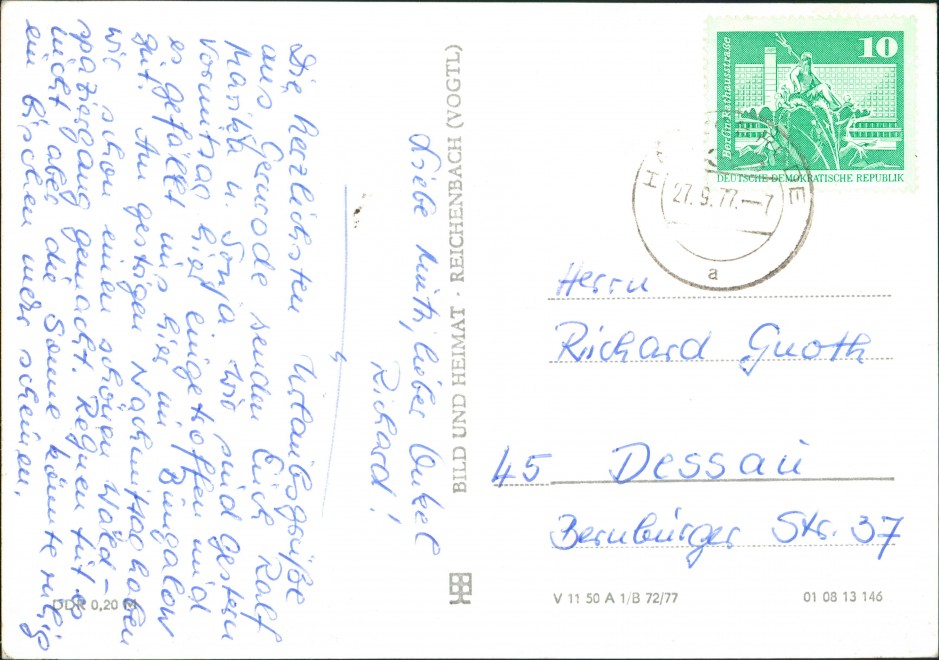 Liebe Mutti, lieber Onkel
Richard!
Die herzlichsten Urlaubsgrüße
aus Gernrode senden Euch Ralf
Marika u. Sonja. Wir sind gestern
Vormittag hier eingetroffen und
es gefällt uns hier im Bungalow
gut. Am gestrigen Nachmittag haben
wir schon einen schönen Wald-
spaziergang gemacht. Regnen tut es
nicht aber die Sonne könnte ruhig
ein bischen mehr scheinen.
DDR 0,20 M
BILD UND HEIMAT · REICHENBACH (VOGTL)
10
Berlin, Rathausstraße
DEUTSCHE DEMOKRATISCHE REPUBLIK
27.9.77.-7
a
Herrn
Richard Gnoth
45 Dessau
Bernburger Str. 37
V 11 50 A 1/B 72/77
01 08 13 146